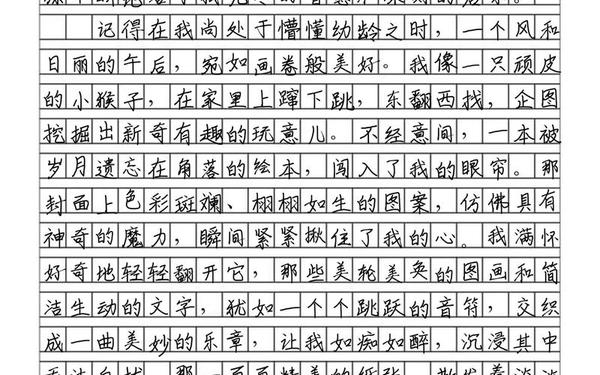 记得在我尚处于懵懂幼龄之时，一个风和
日丽的午后，宛如画卷般美好。我像一只顽皮
的小猴子，在家里上蹿下跳，东翻西找，企图
挖掘出新奇有趣的玩意儿。不经意间，一本被
岁月遗忘在角落的绘本，闯入了我的眼帘。那
封面上色彩斑斓、栩栩如生的图案，仿佛具有
神奇的魔力，瞬间紧紧揪住了我的心。我满怀
好奇地轻轻翻开它，那些美轮美奂的图画和简
洁生动的文字，犹如一个个跳跃的音符，交织
成一曲美妙的乐章，让我如痴如醉，沉浸其中